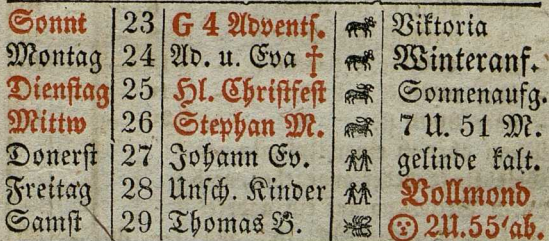 Sonnt 23 G 4 Advents. Viktoria
Montag 24 Ad. u. Eva † Winteranf.
Dienstag 25 Hl. Christfest Sonnenaufg.
Mittw 26 Stephan M. 7 U. 51 M.
Donerst 27 Johann Ev. gelinde kalt.
Freitag 28 Unsch. Kinder Vollmond
Samst 29 Thomas B. 2U.55'ab.